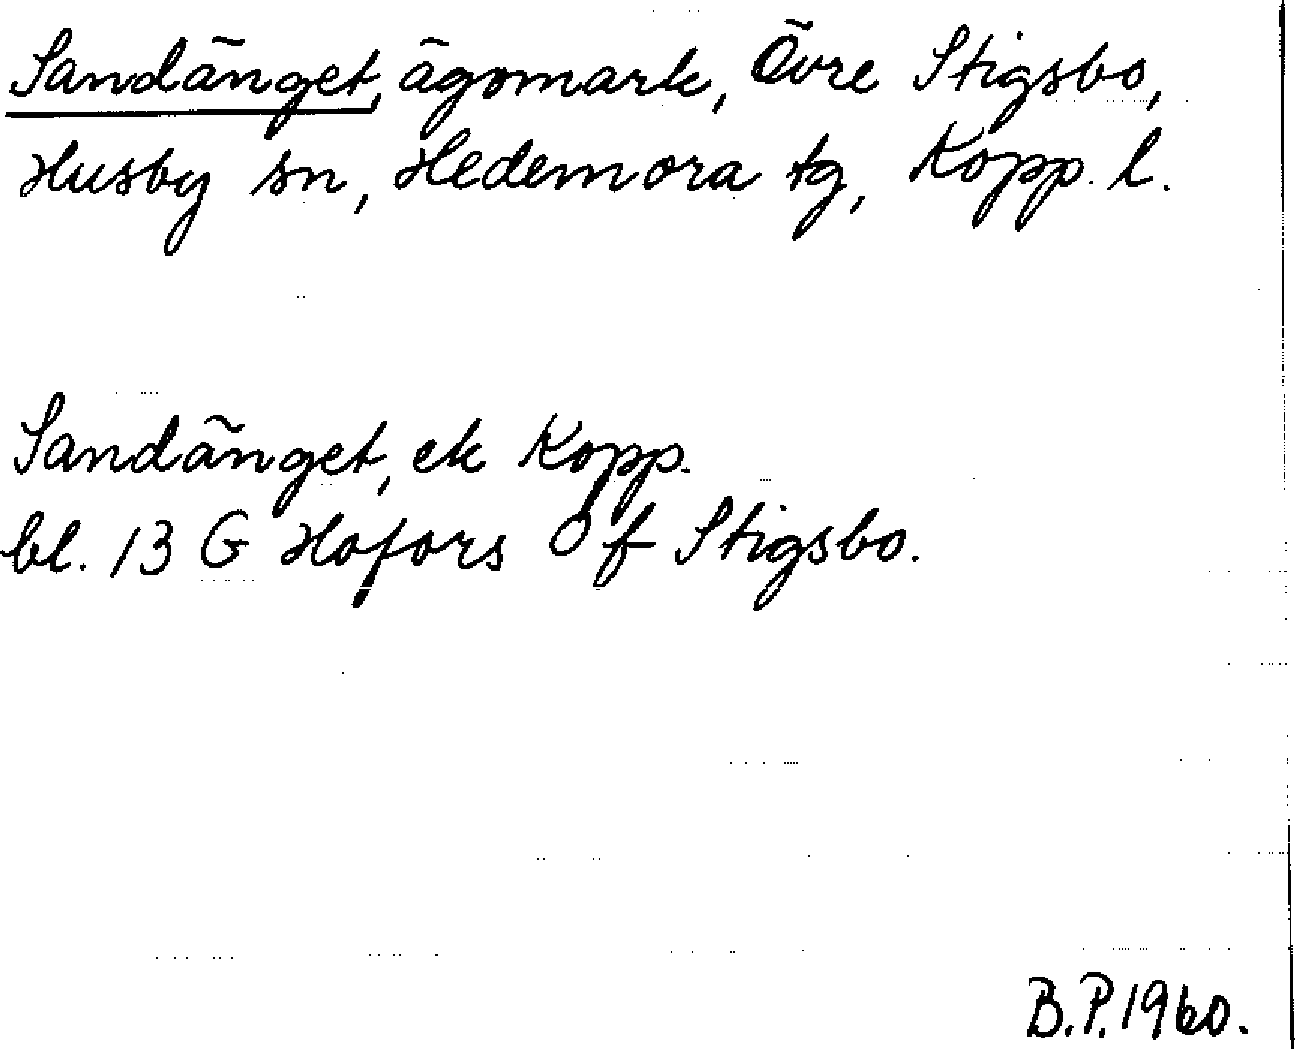 Sandänget, ägomark, Övre Stigsbo,
Husby sn, Hedemora tg, Kopp. l.
Sandänget, ek Kopp.
bl. 13 G Hofors Ö f Stigsbo.
B.P. 1960.